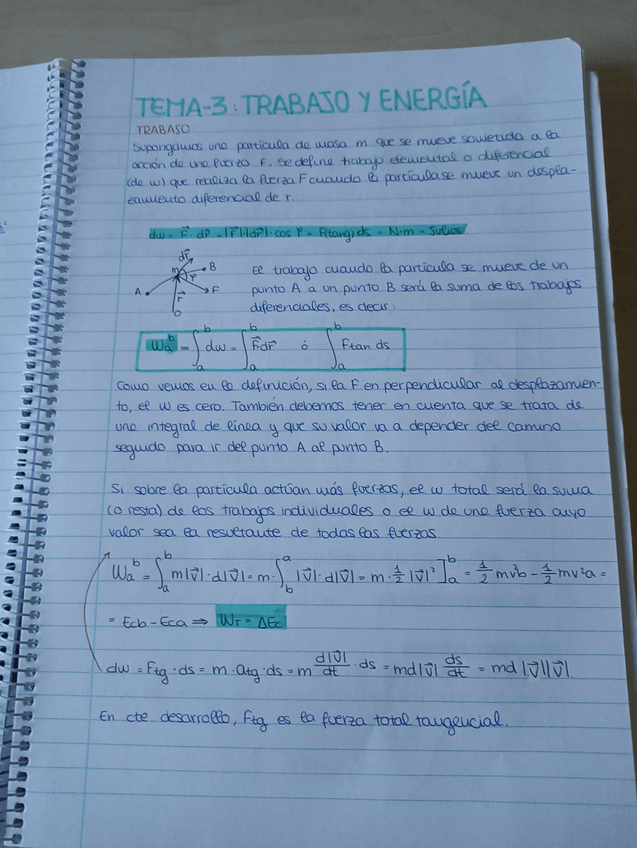 TEMA-3: TRABAJO Y ENERGÍA
TRABAJO
Supongamos una partícula de masa m que se mueve sometida a la
acción de una fuerza F. Se define trabajo elemental o diferencial
(de w) que realiza la fuerza F cuando la partícula se mueve un despla-
zamiento diferencial de r.
dw = F⃗ · dr⃗ = |F⃗||dr⃗| · cos φ = F(tang) ds = N·m = Julios
dr⃗
m B
φ
A F
r⃗
O
El trabajo cuando la partícula se mueve de un
punto A a un punto B será la suma de los trabajos
diferenciales, es decir:
Wa^b = ∫_a^b dw = ∫_a^b F⃗dr⃗ ó ∫_a^b Ftan ds
Como vemos en la definición, si la F en perpendicular al desplazamien-
to, el w es cero. También debemos tener en cuenta que se trata de
una integral de línea y que su valor va a depender del camino
seguido para ir del punto A al punto B.
Si sobre la partícula actúan más fuerzas, el w total será la suma
(o resta) de los trabajos individuales o el w de una fuerza cuyo
valor sea la resultante de todas las fuerzas.
Wa^b = ∫_a^b m|v⃗|·d|v⃗| = m·∫_b^a |v⃗|·d|v⃗| = m·1/2 |v⃗|²]_a^b = 1/2 mv²b - 1/2 mv²a =
= Ecb - Eca ⇒ WT = ΔEc
dw = Ftg · ds = m · atg · ds = m d|v⃗|/dt · ds = md|v⃗| ds/dt = md |v⃗||v⃗|
En cte desarrollo, Ftg es la fuerza total tangencial.